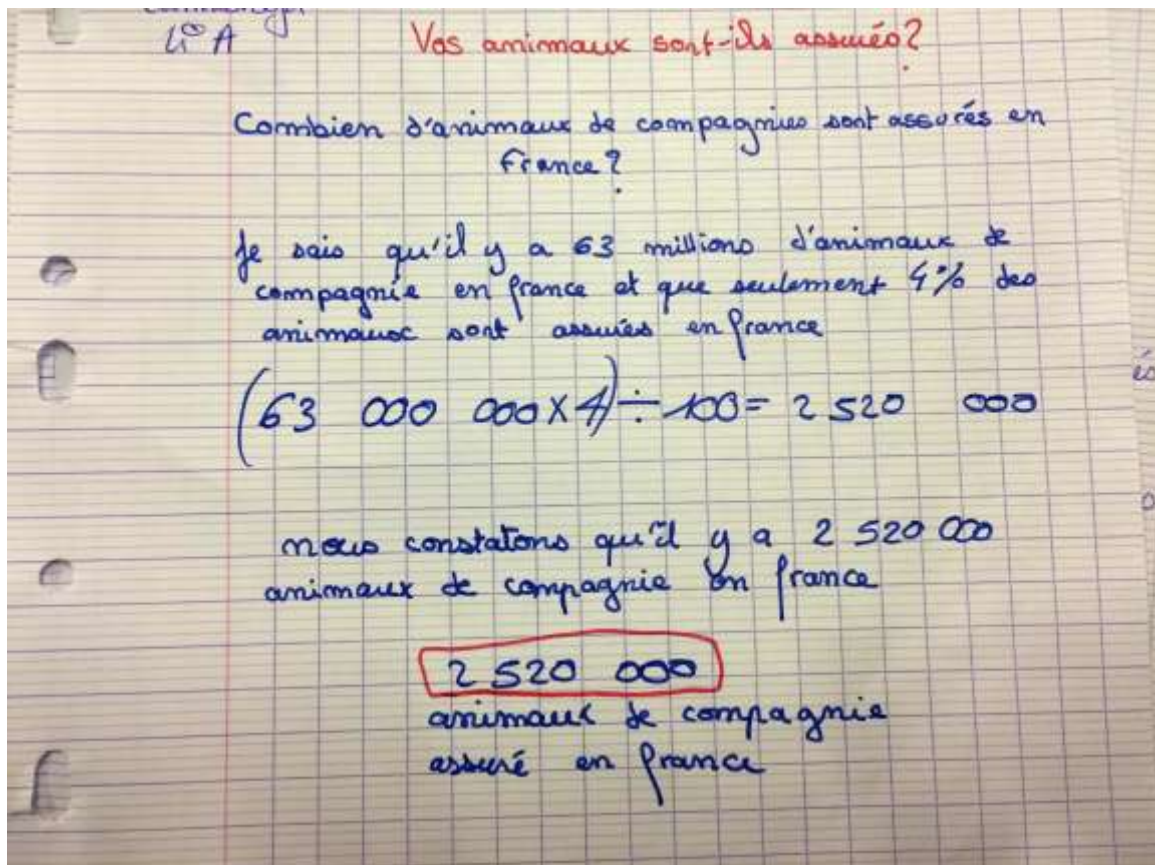 4° A
Vos animaux sont-ils assurés?
Combien d'animaux de compagnies sont assurés en
France?
Je sais qu'il y a 63 millions d'animaux de
compagnie en france et que seulement 4% des
animaux sont assurés en france
(63 000 000 x 4) ÷ 100 = 2 520 000
nous constatons qu'il y a 2 520 000
animaux de compagnie en france
2 520 000
animaux de compagnie
assuré en france